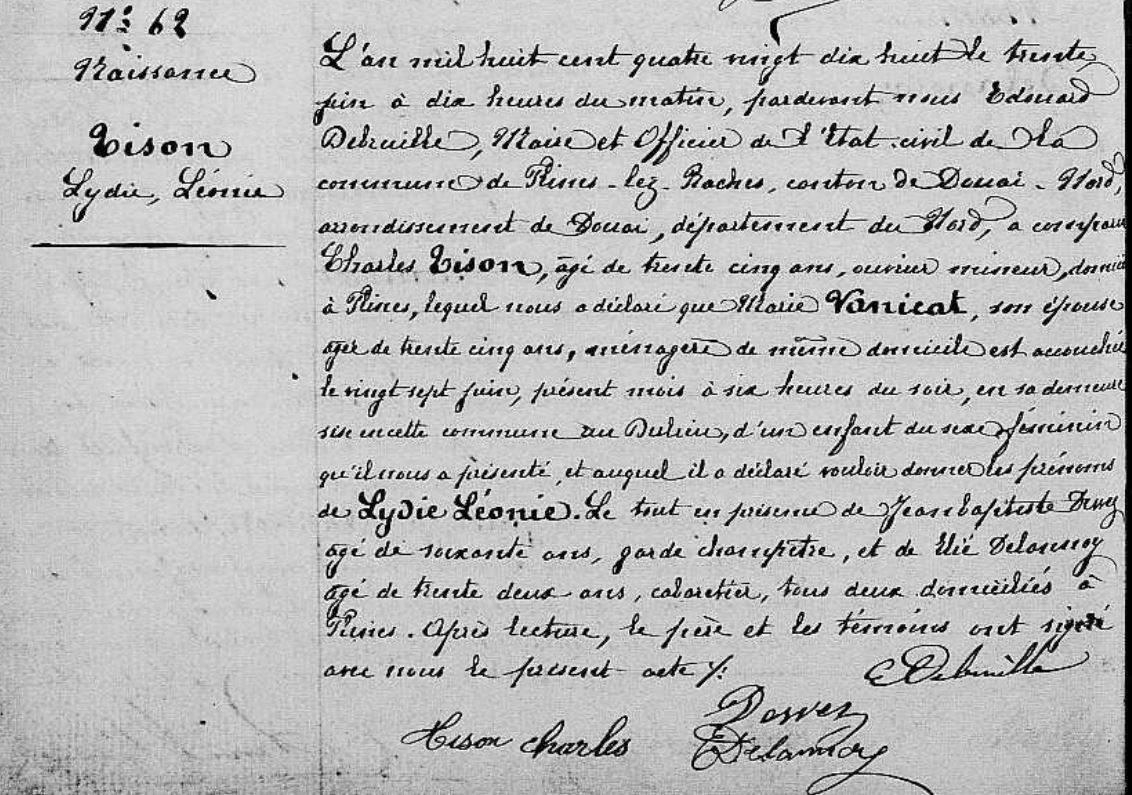 N° 62
Naissance
Tison
Lydie, Léonie
L'an mil huit cent quatre vingt dix huit le trente
juin à dix heures du matin, pardevant nous Edouard
Debruille, Maire et Officier de l'Etat-civil de la
commune de Flines-lez-Raches, canton de Douai-Nord,
arrondissement de Douai, département du Nord, a comparu
Charles Tison, âgé de trente cinq ans, ouvrier mineur, domicilié
à Flines, lequel nous a déclaré que Marie Vanicat, son épouse
âgée de trente cinq ans, ménagère de même domicile est accouchée
le vingt sept juin, présent mois à six heures du soir, en sa demeure
sise en cette commune au, d'un enfant du sexe féminin
qu'il nous a présenté, et auquel il a déclaré vouloir donner les prénoms
de Lydie Léonie. Le tout en présence de Jean Baptiste Dervez
âgé de soixante ans, garde champêtre, et de Elie Delannoy
âgé de trente deux ans, cabaretier, tous deux domiciliés à
Flines. Après lecture, le père et les témoins ont signé
avec nous le présent acte %.
E Debruille
Dervez
Tison charles
E Delannoy